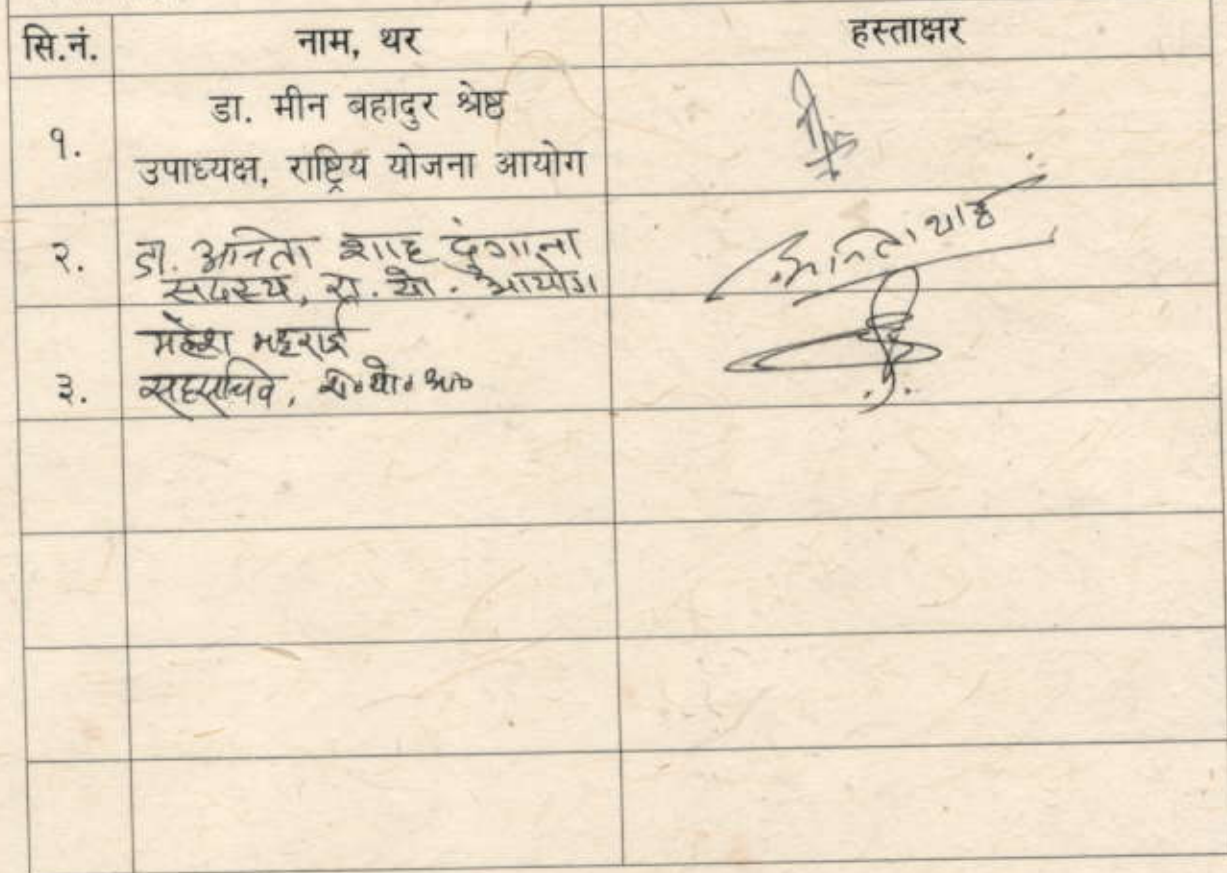 सि.नं. नाम, थर हस्ताक्षर
१. डा. मीन बहादुर श्रेष्ठ
उपाध्यक्ष, राष्ट्रिय योजना आयोग
२. डा. अनिता शाह ढुंगाना अनिता शाह
सदस्य, रा. यो. आयोग
महेश भट्टराई
३. सहसचिव, रा०यो०आ०